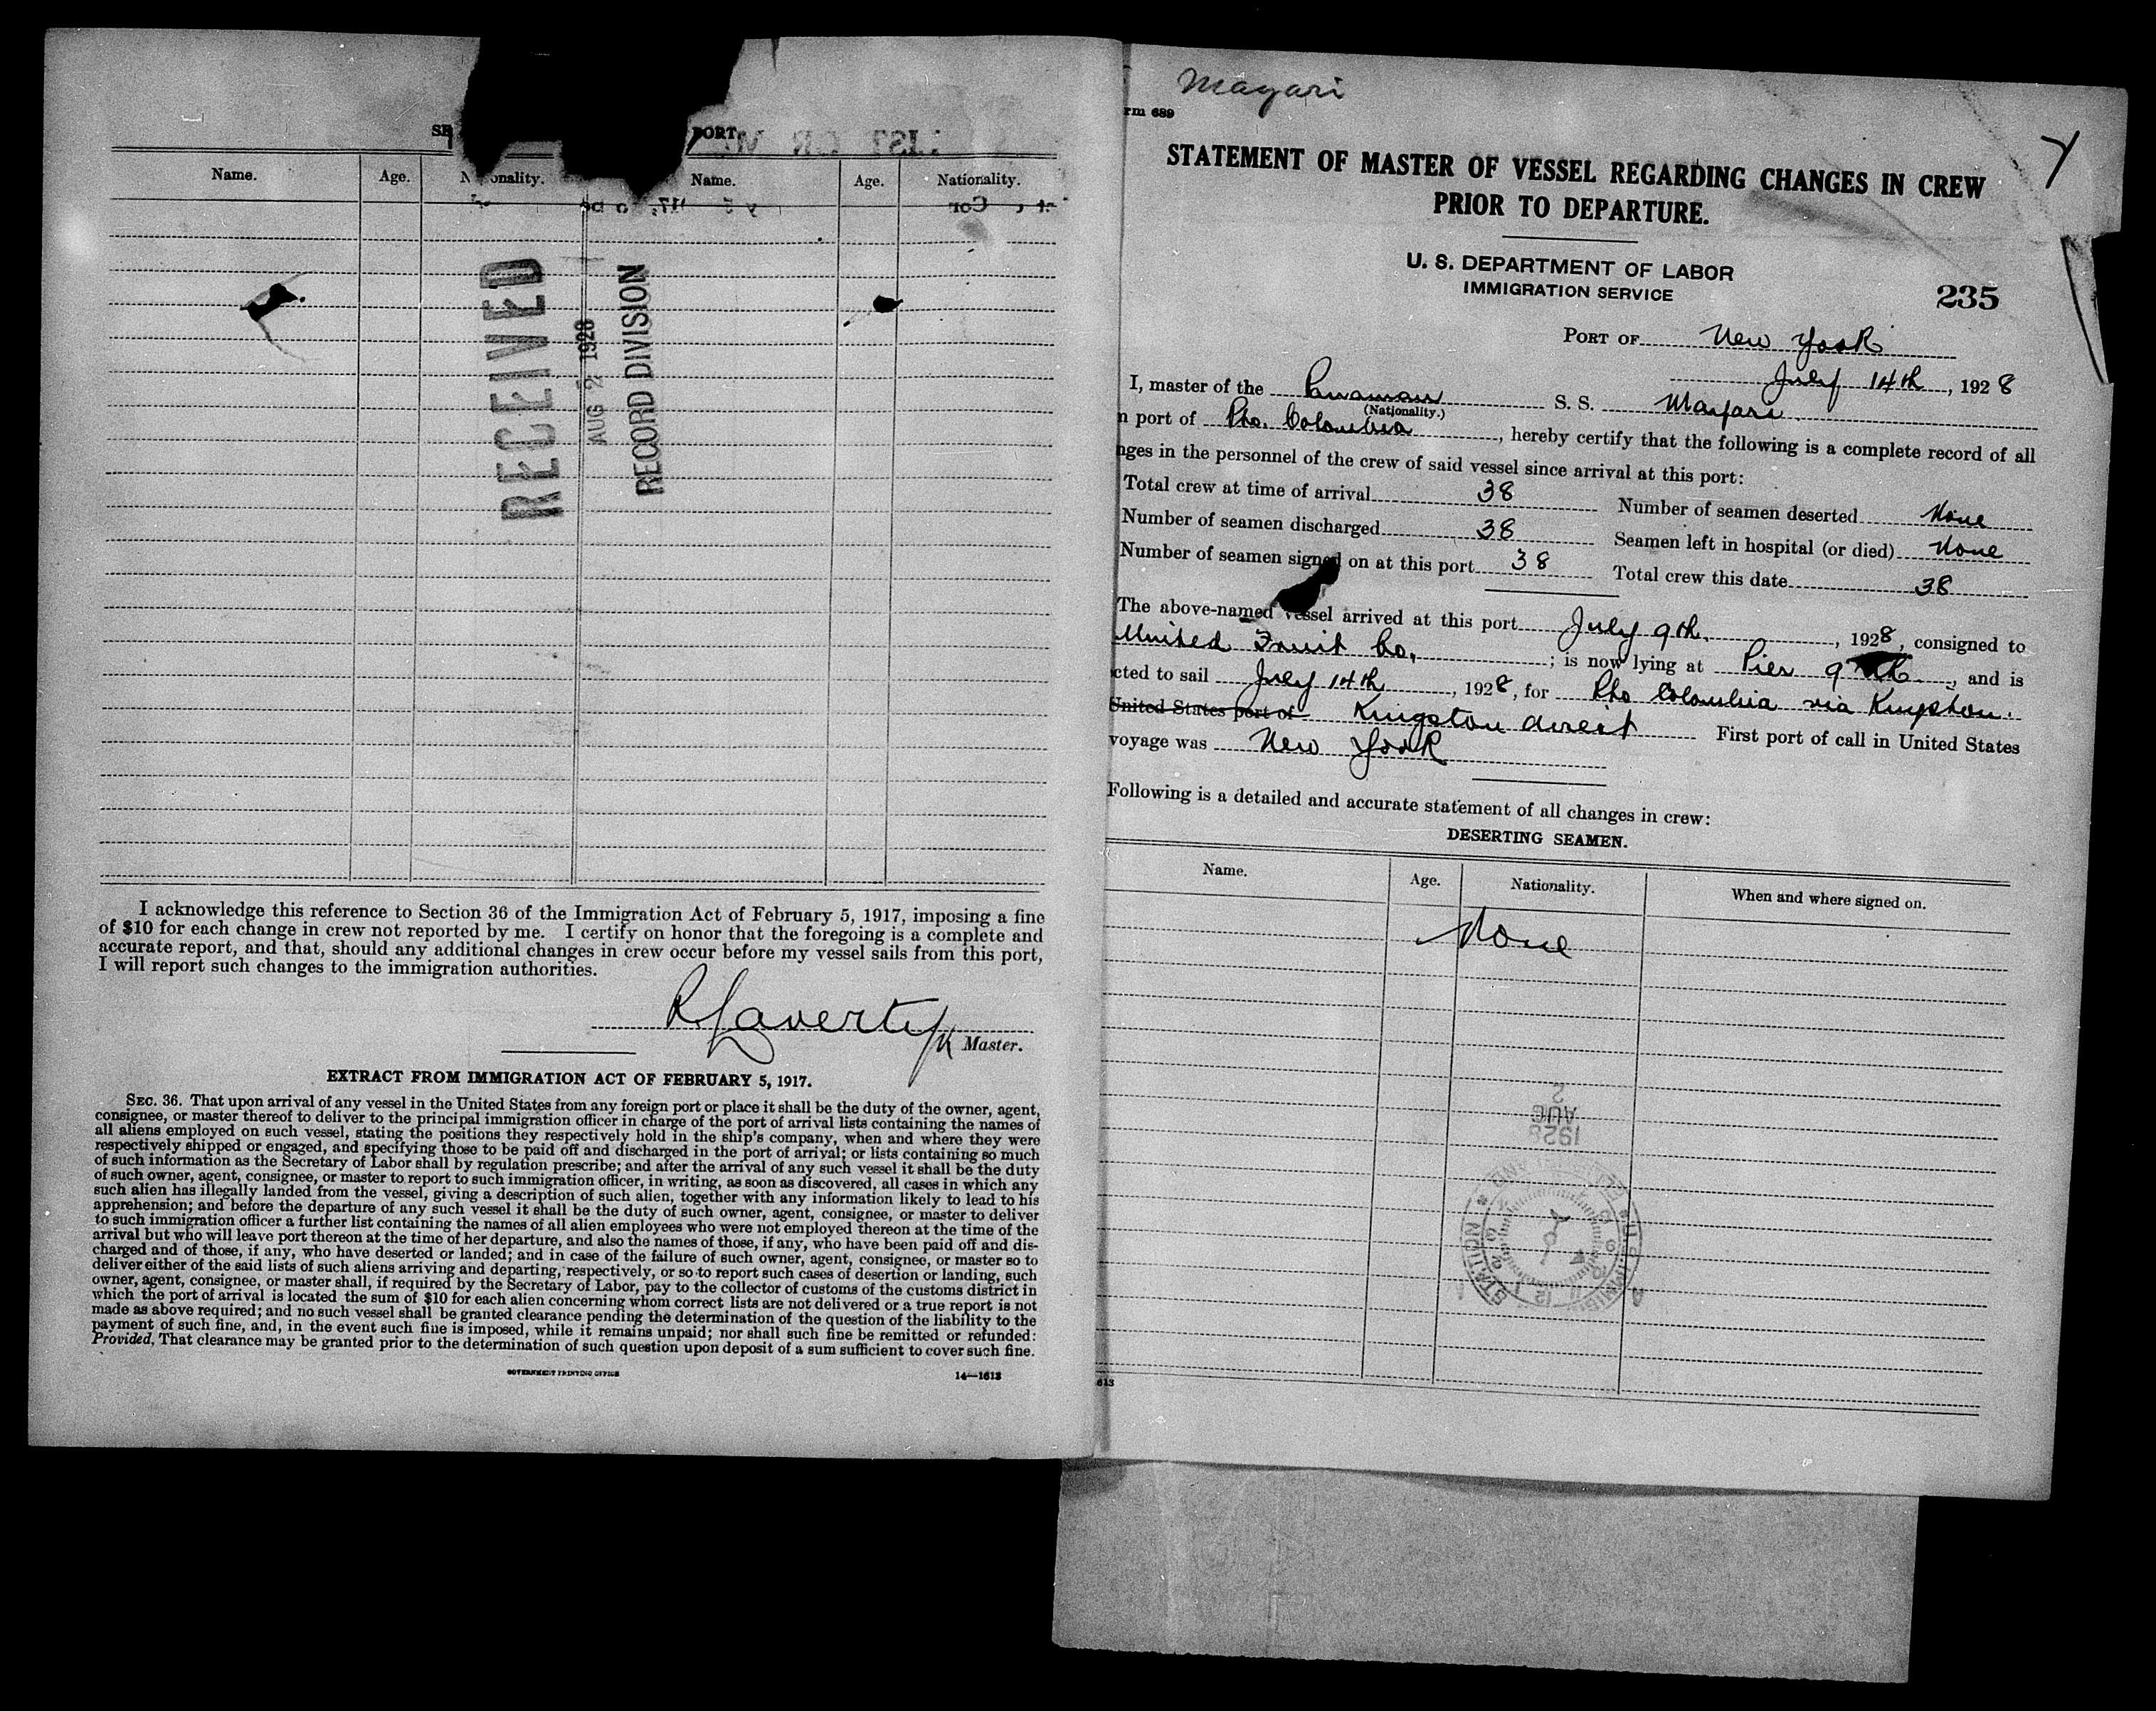 SE
PORT
Name. Age. Nationality. Name. Age. Nationality.
RECEIVED
AUG 2 1928
RECORD DIVISION
I acknowledge this reference to Section 36 of the Immigration Act of February 5, 1917, imposing a fine
of $10 for each change in crew not reported by me. I certify on honor that the foregoing is a complete and
accurate report, and that, should any additional changes in crew occur before my vessel sails from this port,
I will report such changes to the immigration authorities.
R Laverty
Master.
EXTRACT FROM IMMIGRATION ACT OF FEBRUARY 5, 1917.
SEC. 36. That upon arrival of any vessel in the United States from any foreign port or place it shall be the duty of the owner, agent,
consignee, or master thereof to deliver to the principal immigration officer in charge of the port of arrival lists containing the names of
all aliens employed on such vessel, stating the positions they respectively hold in the ship's company, when and where they were
respectively shipped or engaged, and specifying those to be paid off and discharged in the port of arrival; or lists containing so much
of such information as the Secretary of Labor shall by regulation prescribe; and after the arrival of any such vessel it shall be the duty
of such owner, agent, consignee, or master to report to such immigration officer, in writing, as soon as discovered, all cases in which any
such alien has illegally landed from the vessel, giving a description of such alien, together with any information likely to lead to his
apprehension; and before the departure of any such vessel it shall be the duty of such owner, agent, consignee, or master to deliver
to such immigration officer a further list containing the names of all alien employees who were not employed thereon at the time of the
arrival but who will leave port thereon at the time of her departure, and also the names of those, if any, who have been paid off and dis-
charged and of those, if any, who have deserted or landed; and in case of the failure of such owner, agent, consignee, or master so to
deliver either of the said lists of such aliens arriving and departing, respectively, or so to report such cases of desertion or landing, such
owner, agent, consignee, or master shall, if required by the Secretary of Labor, pay to the collector of customs of the customs district in
which the port of arrival is located the sum of $10 for each alien concerning whom correct lists are not delivered or a true report is not
made as above required; and no such vessel shall be granted clearance pending the determination of the question of the liability to the
payment of such fine, and, in the event such fine is imposed, while it remains unpaid; nor shall such fine be remitted or refunded:
Provided, That clearance may be granted prior to the determination of such question upon deposit of a sum sufficient to cover such fine.
GOVERNMENT PRINTING OFFICE 14—1613
Mayari
rm 689
STATEMENT OF MASTER OF VESSEL REGARDING CHANGES IN CREW
PRIOR TO DEPARTURE.
U. S. DEPARTMENT OF LABOR
IMMIGRATION SERVICE
235
PORT OF New York
July 14th, 1928
I, master of the Panaman S. S. Mayari
(Nationality.)
port of Pto. Colombia, hereby certify that the following is a complete record of all
nges in the personnel of the crew of said vessel since arrival at this port:
Total crew at time of arrival 38 Number of seamen deserted None
Number of seamen discharged 38 Seamen left in hospital (or died) None
Number of seamen signed on at this port 38 Total crew this date 38
The above-named vessel arrived at this port July 9th, 1928, consigned to
United Fruit Co.; is now lying at Pier 9, and is
cted to sail July 14th, 1928, for Pto Colombia via Kingston.
United States port of Kingston direct First port of call in United States
voyage was New York
Following is a detailed and accurate statement of all changes in crew:
DESERTING SEAMEN.
Name. Age. Nationality. When and where signed on.
None
AUG 2
1928
613